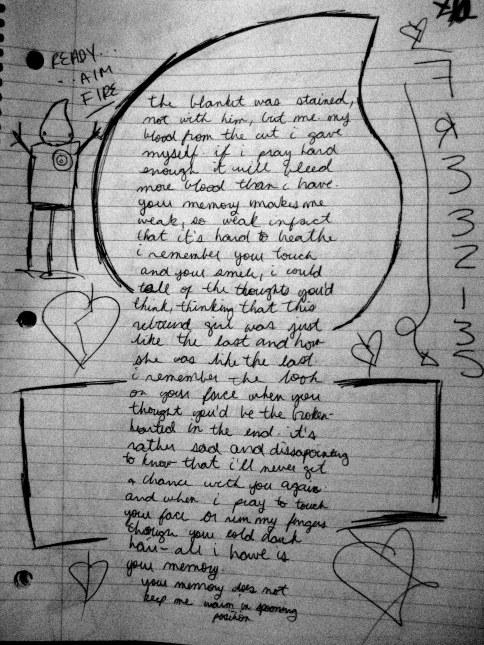 READY...
...AIM
FIRE
the blanket was stained,
not with him, but me my
blood from the cut i gave
myself. if i pray hard
enough it will bleed
more blood than i have.
your memory makes me
weak, so weak infact
that it's hard to breathe
i remember your touch
and your smile, i could
tell of the thoughts you'd
think, thinking that this
rebound girl was just
like the last and how
she was like the last.
i remember the look
on your face when you
thought you'd be the broken-
hearted in the end. it's
rather sad and dissapointing
to know that i'll never get
a chance with you again.
and when i pray to touch
your face or run my fingers
through your cold dark
hair - all i have is
your memory.
your memory does not
keep me warm in spooning
position
7
3
3
2
1
3
5